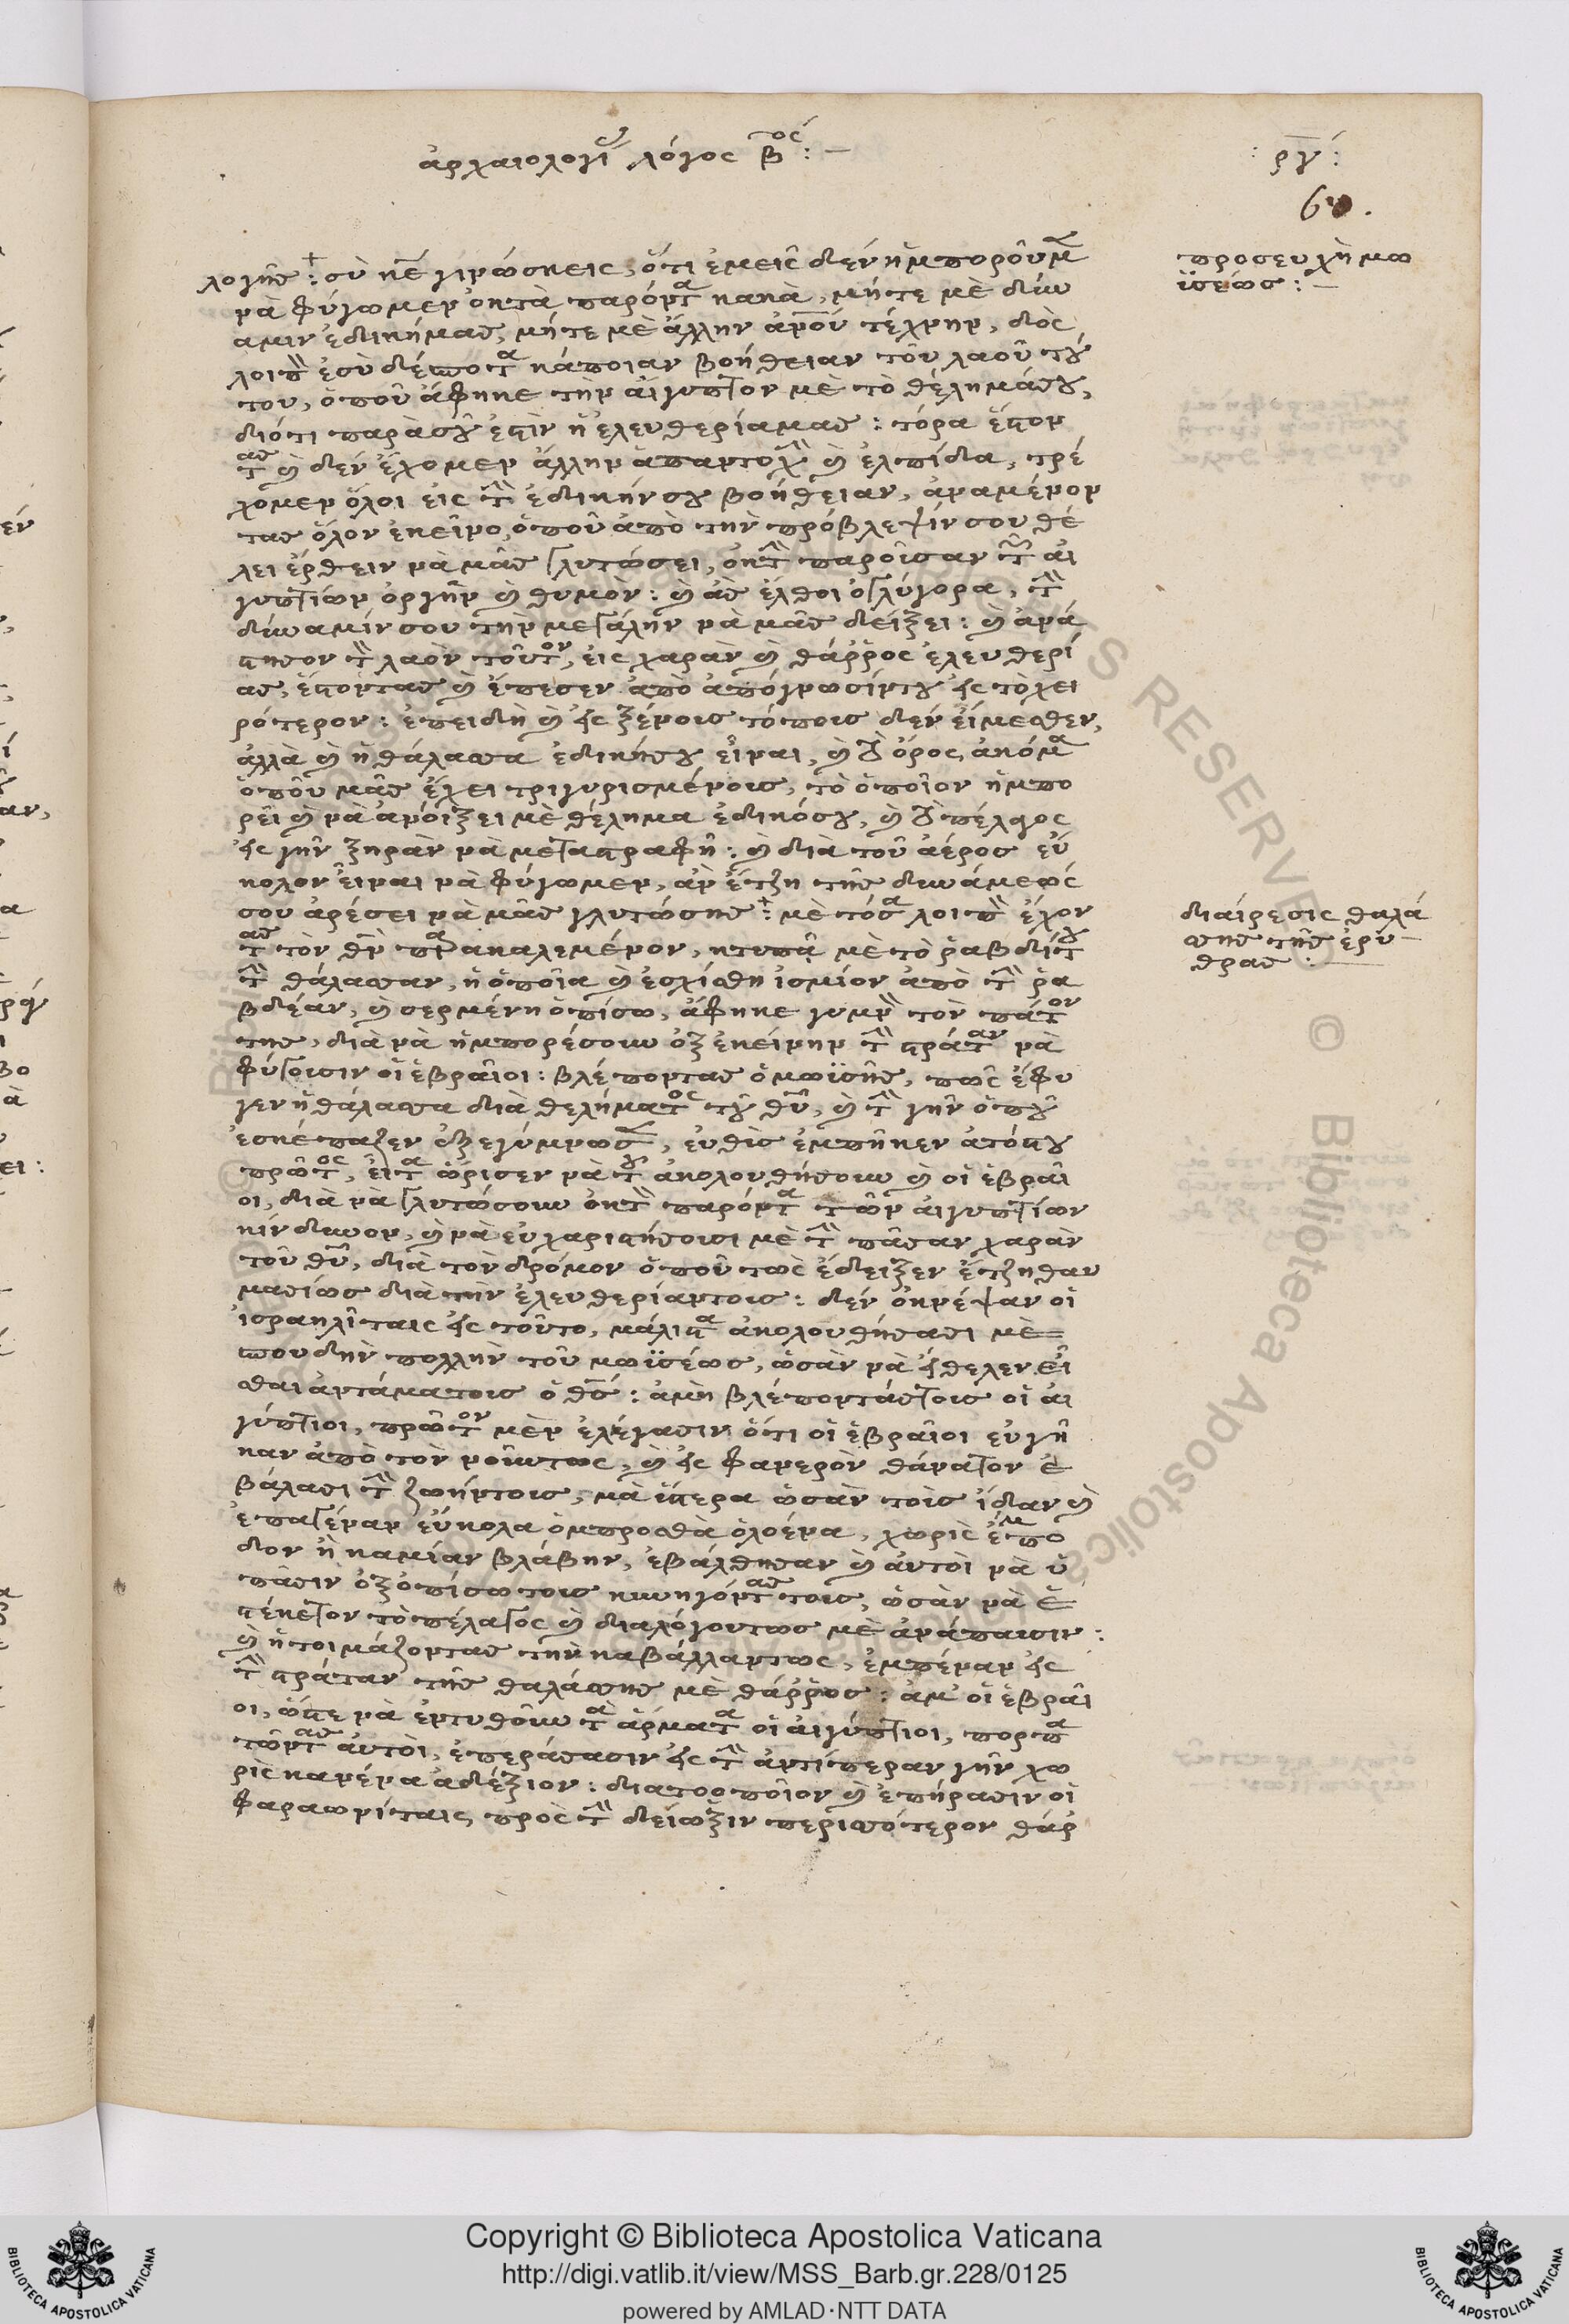 ἀρχαιολογί λόγος β̅ος :—
: ργ :
60.
λογῆσ : σὺ κὲ γινώσκεις, ὅτι ἐμεῖς δὲν ἠμποροῦμ
προσευχὴ μω
νὰ φύγωμεν ὀκτὰ παρόντα κακὰ, μήτε μὲ δύν
ϋσέωσ : —
αμιν ἐδικήμασ, μήτε μὲ ἄλλην ἀνου τέχνην, δὸς
λοιπ ἐσὺ δέσποτα κάποιαν βοήθειαν τοῦ λαοῦ τού
του, ὁποῦ ἄφηκε τὴν αἴγυπτον μὲ τὸ θέλημάσου,
διότι παρὰσοῦ ἐστὶν ἡ ἐλευθερίαμασ : τόρα ἔστον
τασ καὶ δὲν ἔχομεν ἄλλην ἀπαντοχὴ καὶ ἐλπίδα, τρέ
χομεν ὅλοι εἰς τὴν ἐδικήνσου βοήθειαν, ἀναμένον
τασ ὅλον ἐκεῖνο, ὁποῦ ἀπὸ τὴν πρόβλεψίν σου θέ
λει ἔρθειν νὰ μᾶσ γλυτώσει, ὀκτὴν παροῖσαν τῶν αἰ
γυπτίων ὀργὴν καὶ θυμὸν : καὶ ἂσ ἔλθοι ὀγλύγορα, τὴν
δύναμίν σου τὴν μεγάλην νὰ μᾶσ δείξει : καὶ ἀνά
στησον τὸν λαὸν τοῦτον, εἰς χαρὰν καὶ θάρρος ἐλευθερί
ασ, ἔστοντασ καὶ ἔπεσεν ἀπὸ ἀπόγνωσίντου εἰς τὸ χει
ρότερον : ἐπειδὴ καὶ εἰς ξένοισ τόποισ δὲν εἴμεσθεν,
ἀλλὰ καὶ ἡ θάλασσα ἐδικήσου εἶναι, καὶ τὸ ὄρος ἀκόμα
ὁποῦ μᾶσ ἔχει τριγυρισμένοισ, τὸ ὁποῖον ἠμπο
ρεῖ καὶ νὰ ἀνοίξει μὲ θέλημα ἐδικόσου, καὶ τὸ πέλαγος
εἰς γῆν ξηρὰν νὰ μεταστραφῆ : καὶ διὰ τοῦ ἀέροσ εὔ
κολον εἶναι νὰ φύγωμεν, ἂν ἔτζη τῆσ δυνάμεώς
σου ἀρέσει νὰ μᾶσ γλυτώσησ : μὲ τόσα λοιπὸν ἔχον
διαίρεσις θαλά
τασ τὸν θν παρακαλεμένον, κτυπᾶ μὲ τὸ ῥαβδίτου
σσησ τῆσ ἐρυ—
τὴν θάλασσαν, ἡ ὁποῖα καὶ ἐσχίσθη ἰσμίον ἀπὸ τὴν ῥα
θρασ : —
βδέαν, καὶ σερμένη ὀπίσω, ἄφηκε γυμνὸν τὸν πάτον
τησ, διὰ νὰ ἠμπορέσουν ὀξ ἐκείνην τὴν στράταν νὰ
φύγοισιν οἱ ἑβραῖοι : βλέποντασ ὁ μωϋσῆσ, πῶς ἔφυ
γεν ἡ θάλασσα διὰ θελήματος τοῦ θυ, καὶ τὴν γῆν ὁποῦ
ἐσκέπαζεν ὀξεγύμνωσ, εὐθὶσ ἐμπῆκεν ἀτόστου
πρῶτος, εἶτα ὥρισεν νὰ του ἀκολουθήσουν καὶ οἱ ἑβραῖ
οι, διὰ να γλυτώσουν ὀκτὸν παρόντα τῶν αἰγυπτίων
κίνδυνον, καὶ νὰ εὐχαριστήσοισι μὲ τὴν πᾶσαν χαρὰν
τοῦ θυ, διὰ τὸν δρόμον ὁποῦ τοὺς ἔδειξεν ἔτζη θαυ
μασίωσ διὰ τὴν ἐλευθερίαντοισ : δὲν ὀκνέψαν οἱ
ἰσραηλῖταις εἰς τοῦτο, μάλιστα ἀκολουθήσασι μὲ
σπουδὴν πολλὴν τοῦ μωϋσέωσ, ὡσὰν νὰ ἤθελεν εἶ
σθαι ἀντάματοισ ὁ θσ : ἀμὴ βλέποντάστοισ οἱ αἰ
γύπτιοι, πρῶτον μὲν ἐλέγασιν ὅτι οἱ ἑβραῖοι εὐγῆ
καν ἀπὸ τὸν νοῦντως, καὶ εἰς φανερὸν θάνατον ἐ
βάλασι τὴν ζωήντοισ, μὰ ὕστερα ὡσὰν τοὶσ ἴδαν καὶ
ἐπαγέναν εὔκολα ὀμπροσθὰ ὁλοένα, χωρὶς ἔμπο
δον ἢ καμίαν βλάβην, ἐβάλθησαν καὶ αὐτοὶ νὰ ὑ
πάσιν ὀξοπίσω τοισ κυνηγόντασ τοισ, ὡσὰν νὰ ἐ
στέκετον τὸ πέλαγος καὶ διαλόγουτωσ μὲ ἀνάπαυσιν :
καὶ ἡτοιμάζοντασ τὴν καβάλλαντως, ἐμπέναν εἰς
τὴν στράταν τῆσ θαλάσσησ μὲ θάρροσ : ἀμ' οἱ ἑβραῖ
οι, ὥστε νὰ ἐντυθοῦν τὰ ἄρματα οἱ αἰγύπτιοι, πορπα
τῶντασ αὐτοὶ, ἐπεράσασιν εἰς τὴν ἀντίπεραν γῆν χω
ρὶς κανένα ἀδέξιον : διατοοποῖον καὶ ἐπήρασιν οἱ
φαραωνίταις πρὸς τὴν δείωξιν περισσότερον θάρ
Copyright © Biblioteca Apostolica Vaticana
http://digi.vatlib.it/view/MSS_Barb.gr.228/0125
powered by AMLAD·NTT DATA
BIBLIOTECA APOSTOLICA VATICANA
BIBLIOTECA APOSTOLICA VATICANA